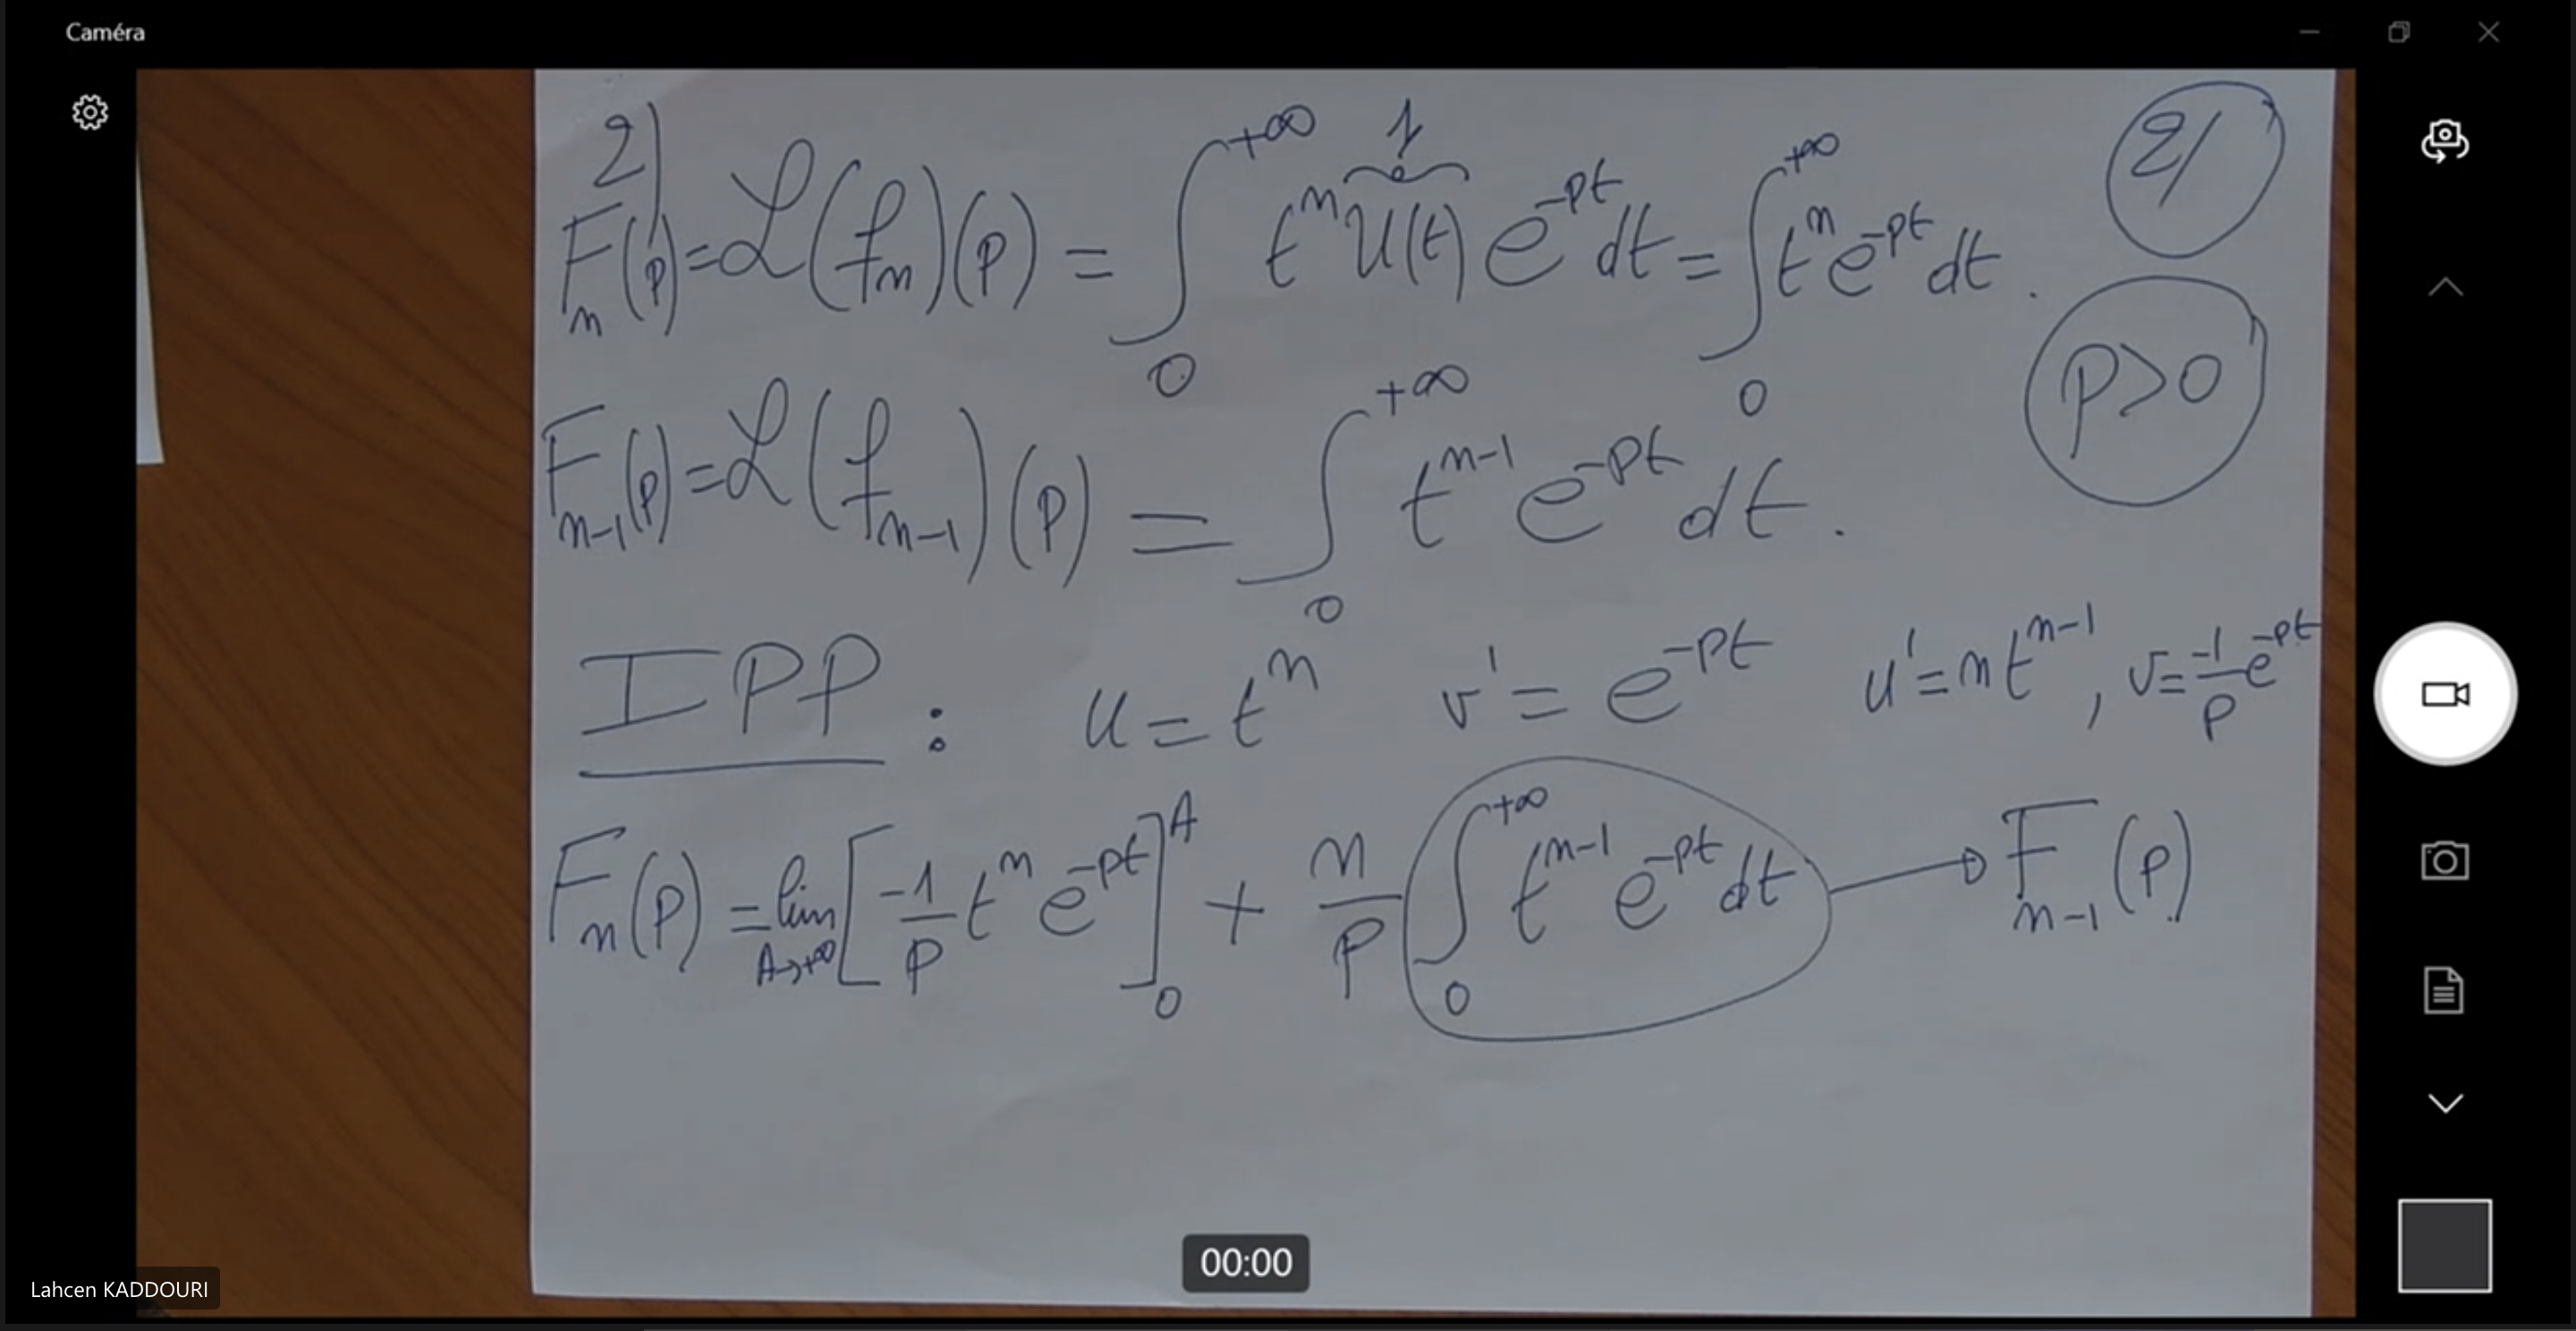 Caméra
2)
Fₙ(p) = ℒ(fₙ)(p) = ∫₀^{+∞} tⁿ U(t) e^{-pt} dt = ∫₀^{+∞} tⁿ e^{-pt} dt.
1
2/
p>0
Fₙ₋₁(p) = ℒ(fₙ₋₁)(p) = ∫₀^{+∞} tⁿ⁻¹ e^{-pt} dt.
IPP : u = tⁿ v' = e^{-pt} u' = n tⁿ⁻¹, v = -1/p e^{-pt}
Fₙ(p) = lim_{A→+∞} [-1/p tⁿ e^{-pt}]₀^A + n/p ∫₀^{+∞} tⁿ⁻¹ e^{-pt} dt → Fₙ₋₁(p).
00:00
Lahcen KADDOURI